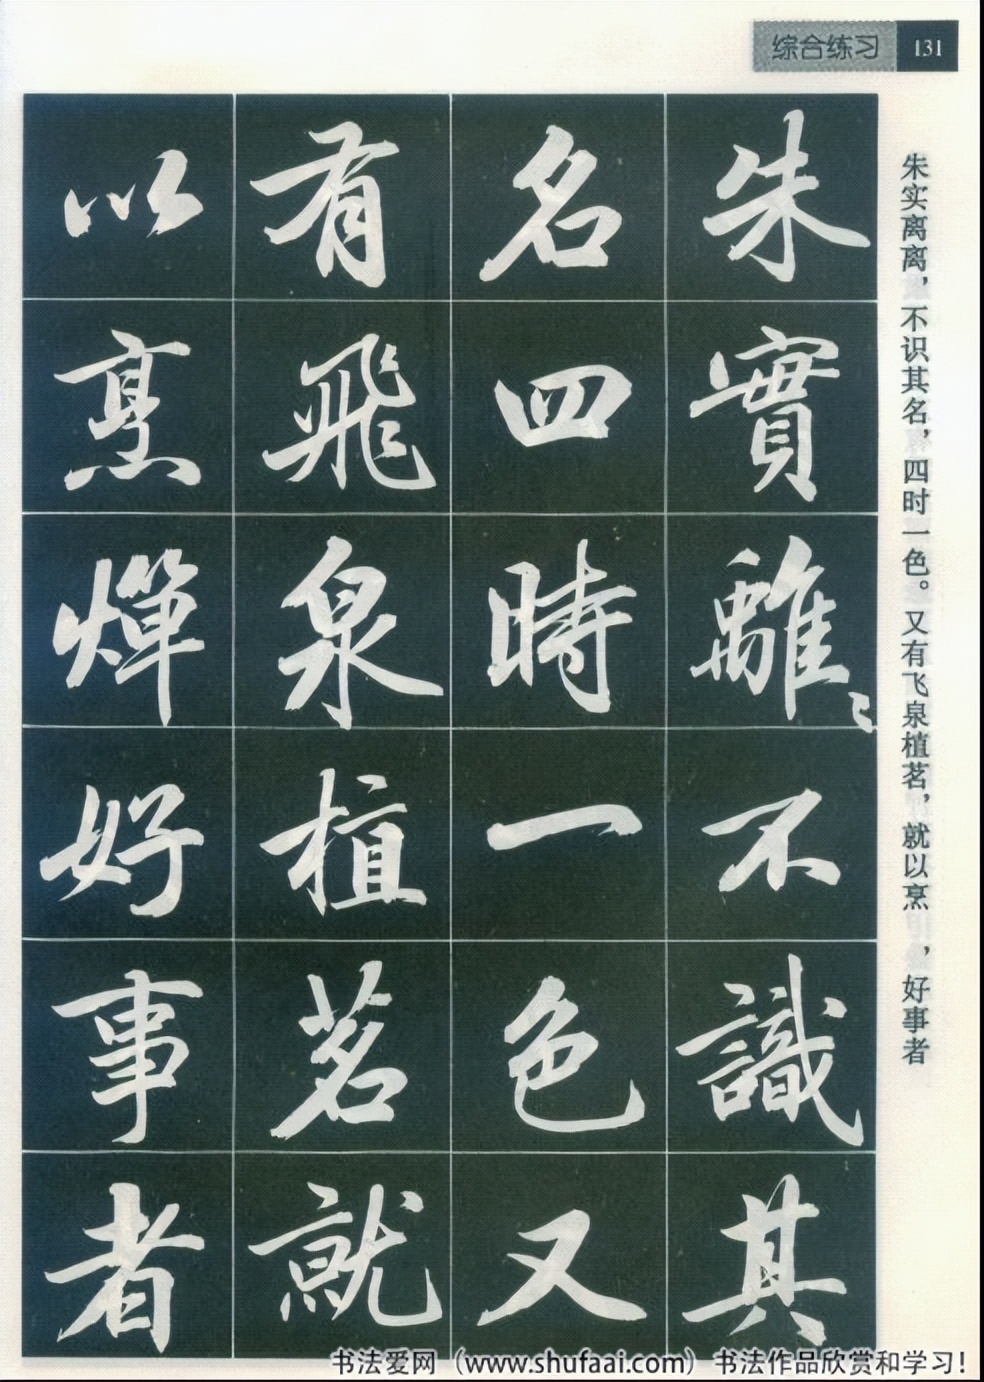 综合练习 131
朱实离离，不识其名，四时一色。又有飞泉植茗，就以烹 ，好事者
朱實離〻不識其
名四時一色又
有飛泉植茗就
以烹燀好事者
书法爱网（www.shufaai.com）书法作品欣赏和学习！